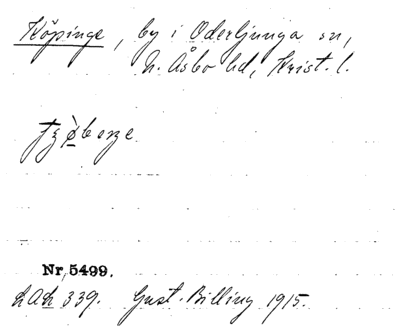 Köpinge, by i Oderljunga sn,
N. Åsbo hd, Krist. l.
Nr 5499.
LAL 339. Gust. Billing 1915.